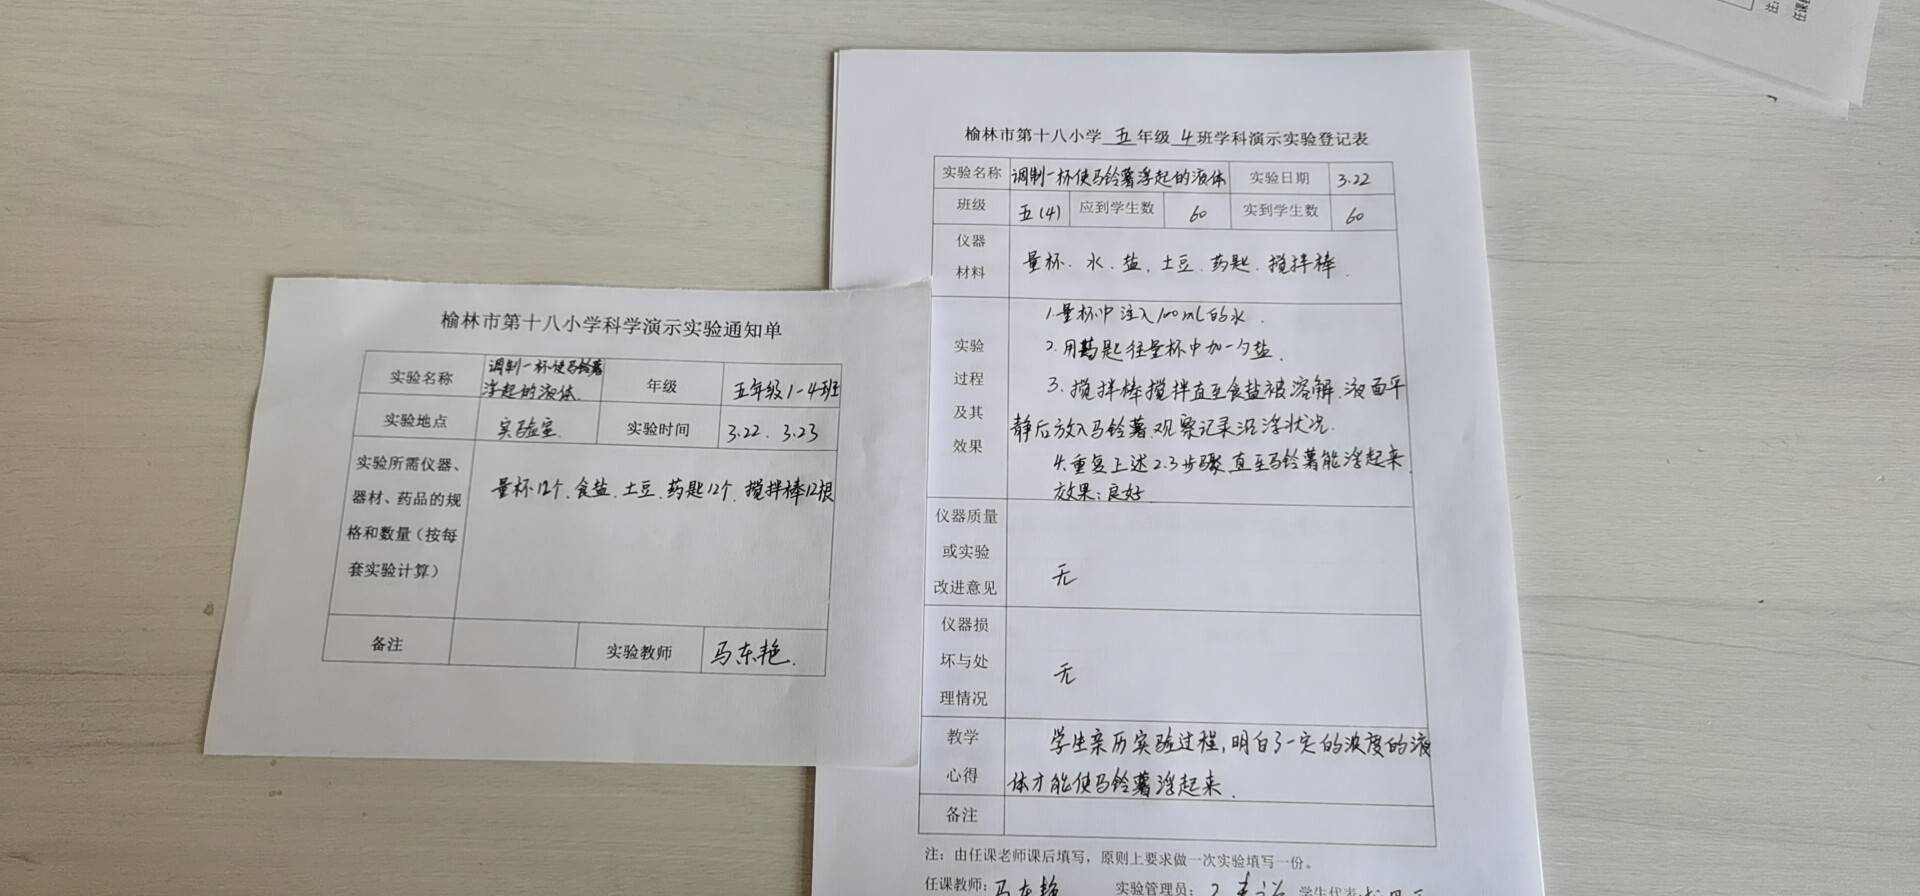 榆林市第十八小学科学演示实验通知单
实验名称 调制一杯使马铃薯浮起的液体. 年级 五年级1-4班
实验地点 实验室. 实验时间 3.22. 3.23
实验所需仪器、
器材、药品的规
格和数量（按每
套实验计算）
量杯12个、食盐、土豆、药匙12个、搅拌棒12根
备注 实验教师 马东艳.
榆林市第十八小学 五 年级 4 班学科演示实验登记表
实验名称 调制一杯使马铃薯浮起的液体 实验日期 3.22
班级 五(4) 应到学生数 60 实到学生数 60
仪器
材料
量杯、水、盐、土豆、药匙、搅拌棒.
实验
过程
及其
效果
1.量杯中注入100mL的水.
2.用药匙往量杯中加一勺盐.
3.搅拌棒搅拌直至食盐被溶解.液面平
静后放入马铃薯.观察记录沉浮状况.
4.重复上述2.3步骤直至马铃薯能浮起来.
效果:良好.
仪器质量
或实验
改进意见
无
仪器损
坏与处
理情况
无
教学
心得
学生亲历实验过程,明白了一定的浓度的液
体才能使马铃薯浮起来.
备注
注：由任课老师课后填写，原则上要求做一次实验填写一份。
任课教师: 马东艳 实验管理员: 学生代表:
注: